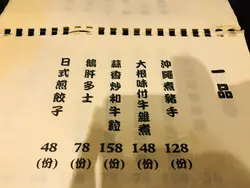 一品
沖繩煮豬手
128
(份)
大根味付牛雜煮
148
(份)
蒜香炒和牛粒
158
(份)
鵝肝多士
78
(份)
日式煎餃子
48
(份)